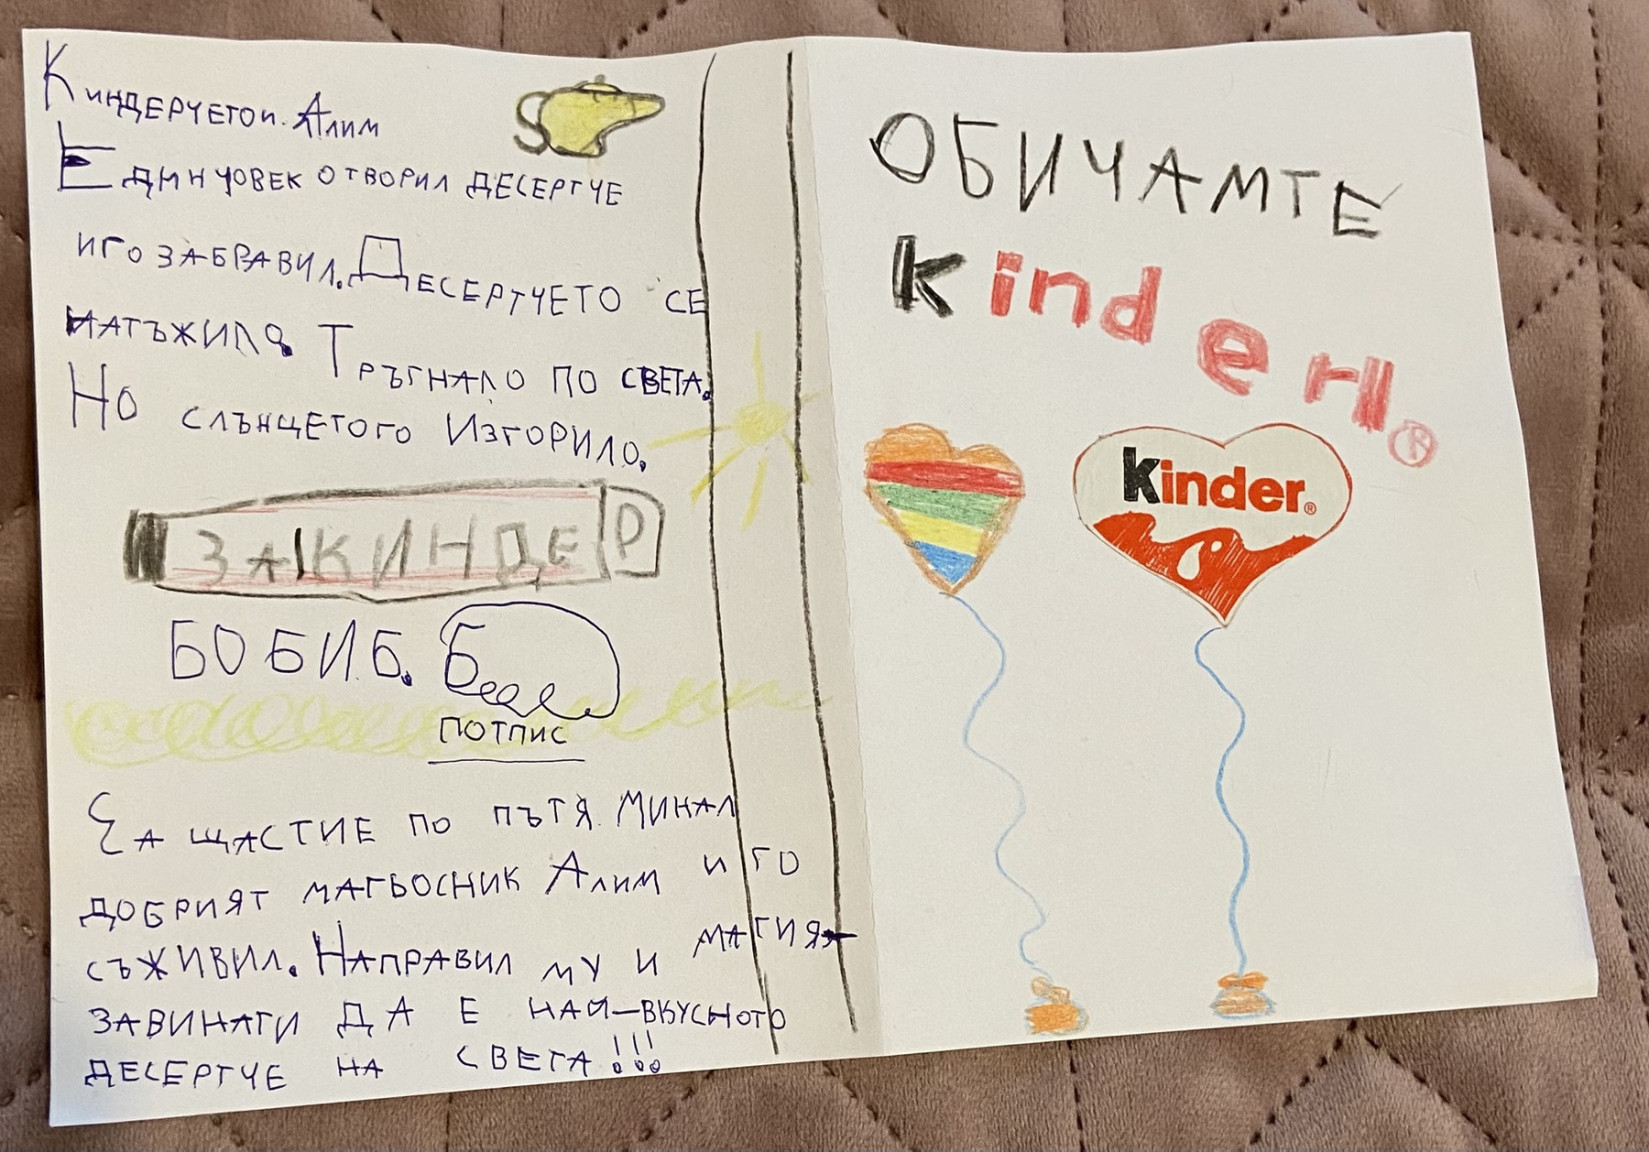 Киндерчетои. Алим
Един човек отворил десертче
иго забравил. Десертчето се
натъжило. Тръгнало по света.
Но слънцетого Изгорило.
ЗА КИНДЕР
БОБИ.Б.
ПОТПИС
За щастие по пътя минал
добрият магьосник Алим и го
съживил. Направил му и магия
завинаги да е най-вкусното
десертче на света!!!
ОБИЧАМТЕ
kinder ®
kinder®